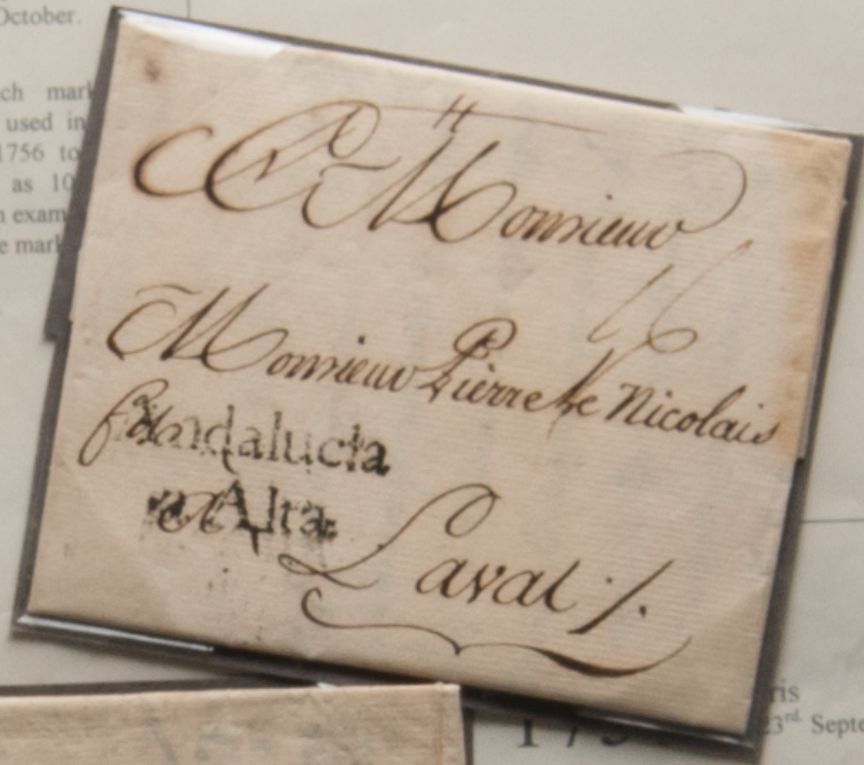 October.
ch mark
used in
1756 to
as 10
n exam
e mark
A Monsieur
16
Monsieur Pierre Nicolais
fils
Andalucia
Alta.
a Laval ./.
ris
23rd. Septe